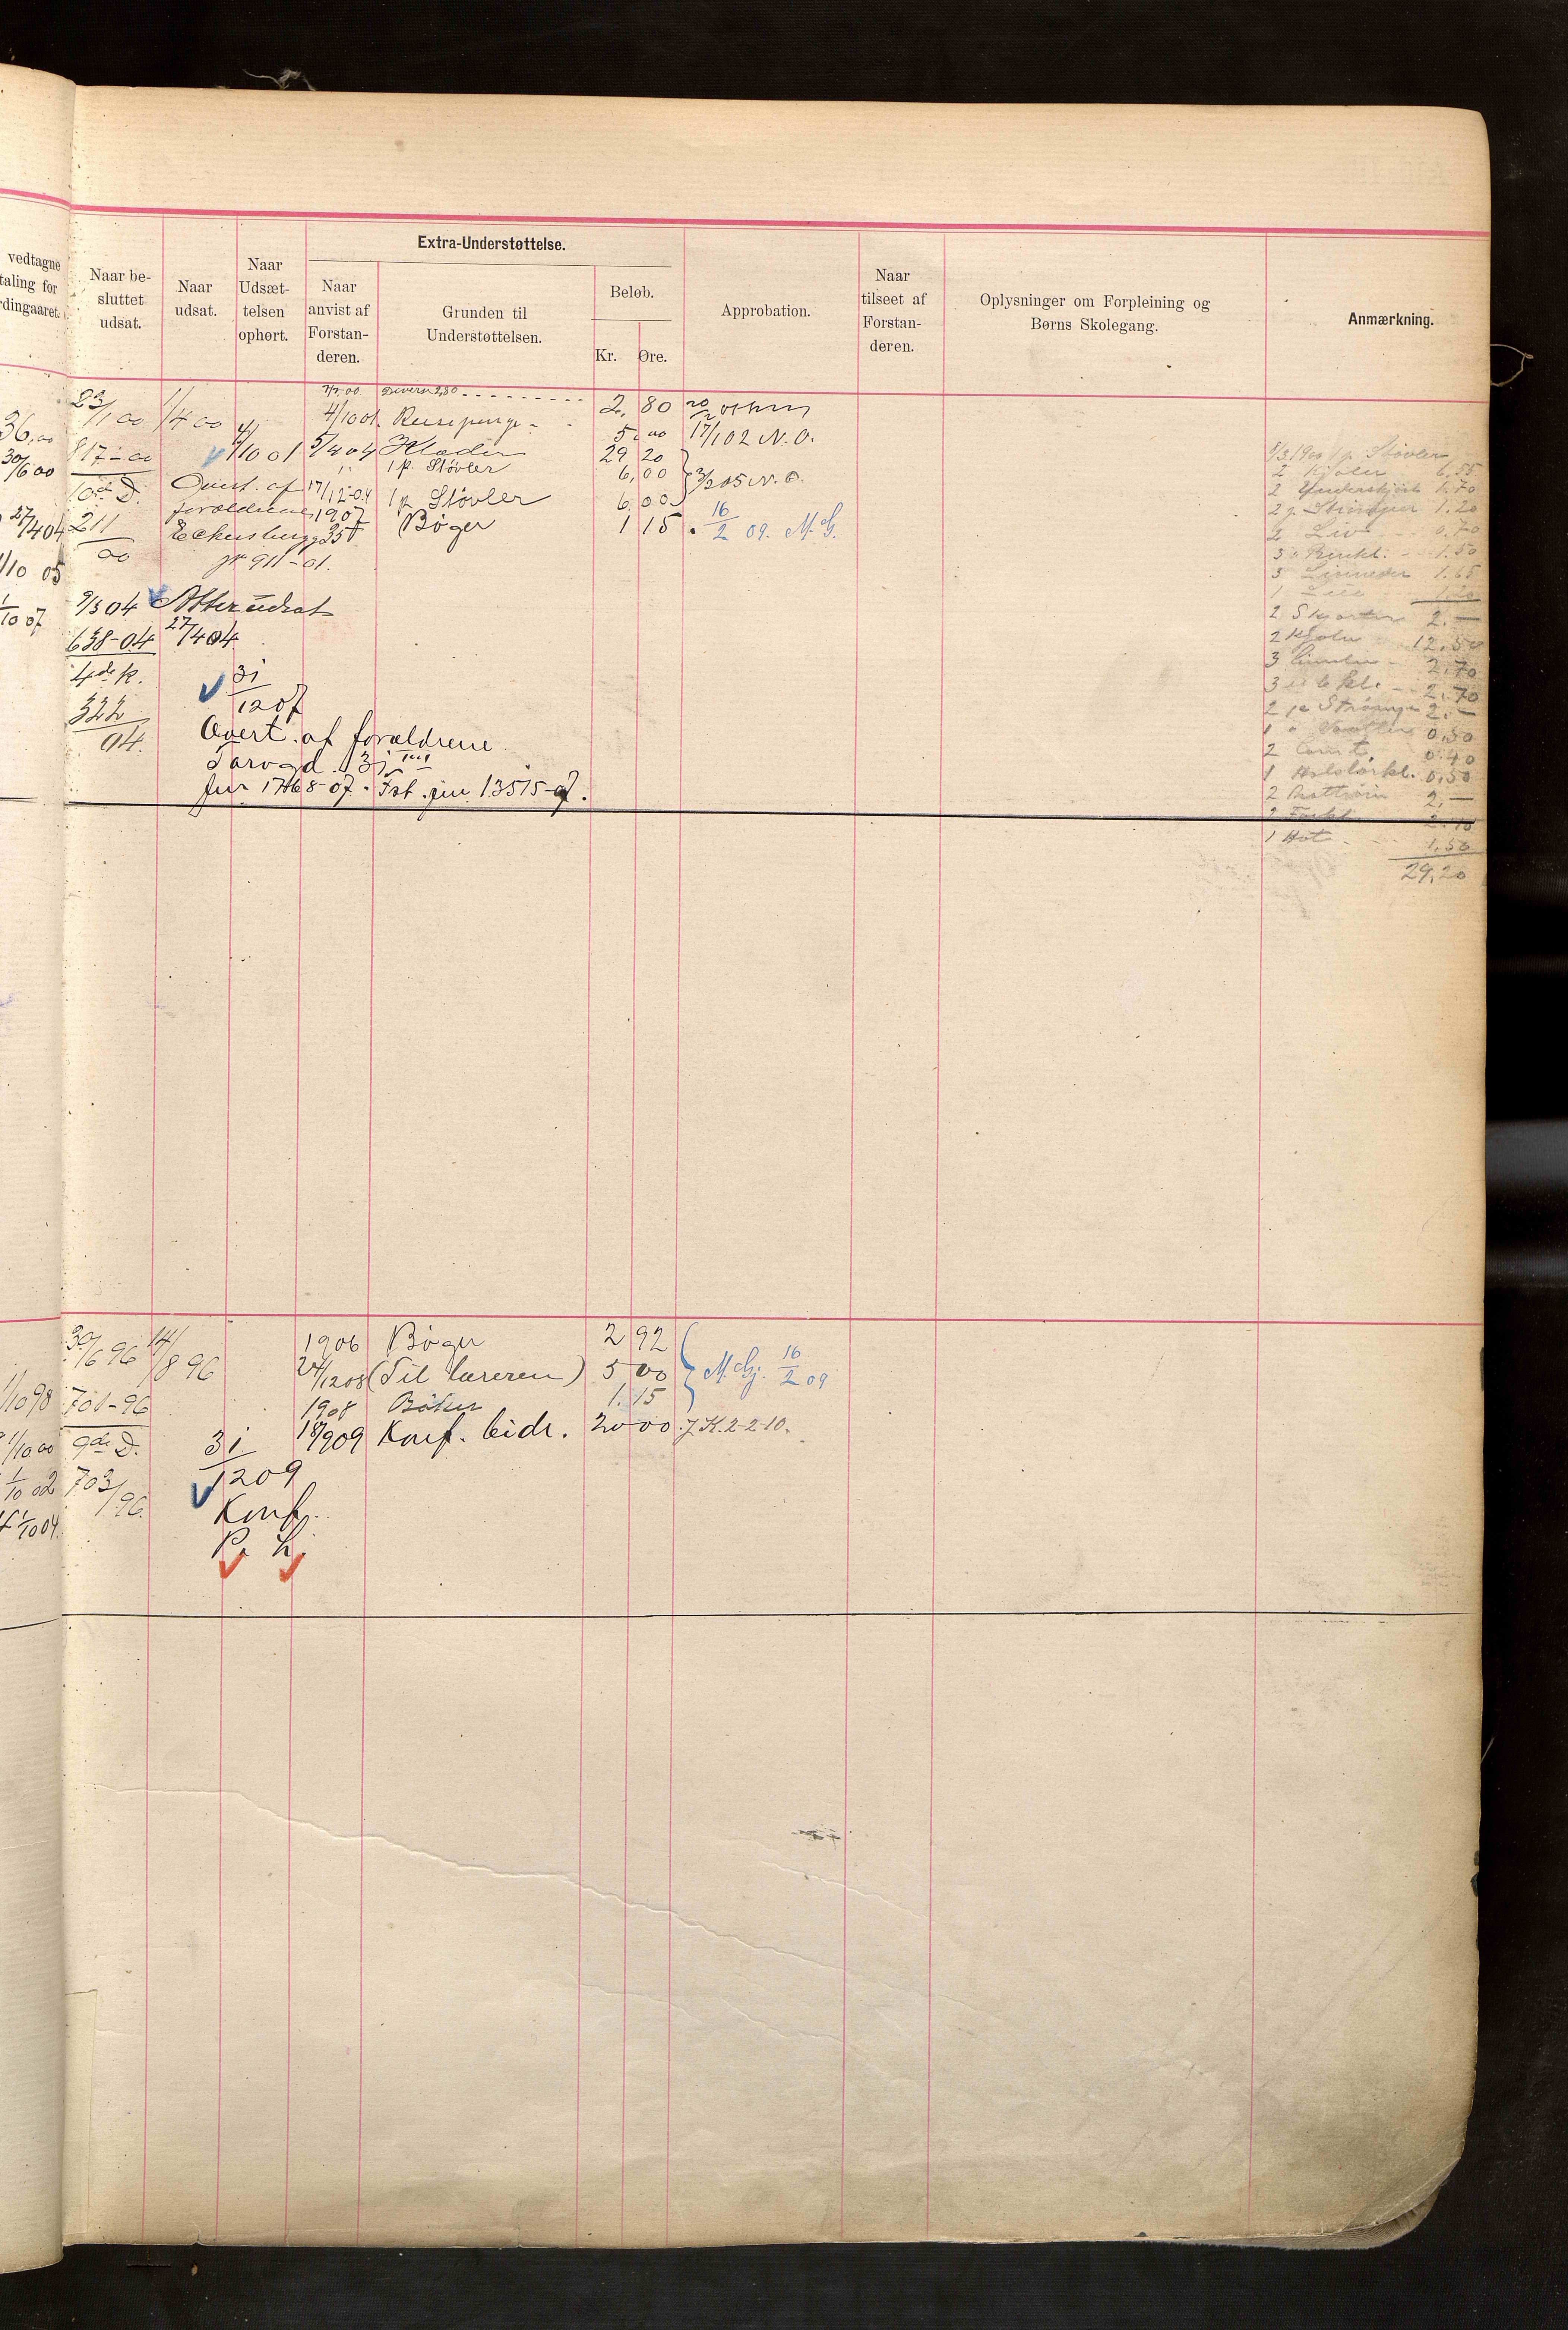 vedtagne
taling for
rdingaaret.
Naar be-
sluttet
udsat.
Naar
udsat.
Naar
Udsæt-
telsen
ophørt.
Extra-Understøttelse.
Naar
anvist af
Forstan-
deren.
Grunden til
Understøttelsen.
Beløb.
Kr. Øre.
Approbation.
Naar
tilseet af
Forstan-
deren.
Oplysninger om Forpleining og
Børns Skolegang.
Anmærkning.
36,00
30/6 00
27/4 04
1/10 05
1/10 07
23/1 00
817-00
10de D.
211
00
9/3 04
638-04
4de K.
322
04.
1/4 00
4/10 01
Overt. af
forældrene
Eckersbergg 35
jr 911-01.
Atter udsat
27/4 04
31
12 07
Overt. af forældrene
Jur 17468-07. Fst. jur 13515-07.
Diverse 2,80 2, 80
4/10 01. Reisepenge 5, 00 17/1 02 N. O.
5/4 04 Klæder 29 20
" 1 p. Støvler 6,00 3/2 05 N. O.
17/12-04 1 p Støvler 6,00
1907 Bøger 1 15 16/2 09. M. G.
8/3 1900 1 p. Støvler
2 Kjoler 6.55
2 Underskjørt 1.70
2 p. Strømper 1.20
2 Liv 0.70
3 1.50
3 Linneder 1.65
1 1.20
2 Skjorter 2.—
2 Kjoler 12.50
3 Linneder 2.70
3 2.70
2 pr Strømper 2.—
1 0,50
2 0.40
1 0,50
2 2,—
2 Forkl.
1 Hat 1.50
29,20
1/10 98
1/10 00
1/10 02
1/10 04.
30/6 96
701-96
9de D.
703/96.
14/8 96
31
12 09
Konf.
P. h.
1906 Bøger 2 92
24/12 08 (Til læreren) 5 00 M. Gj. 16/2 09
1908 Bøker 1.15
18/9 09 Konf. bidr. 20 00. J K. 2-2-10.